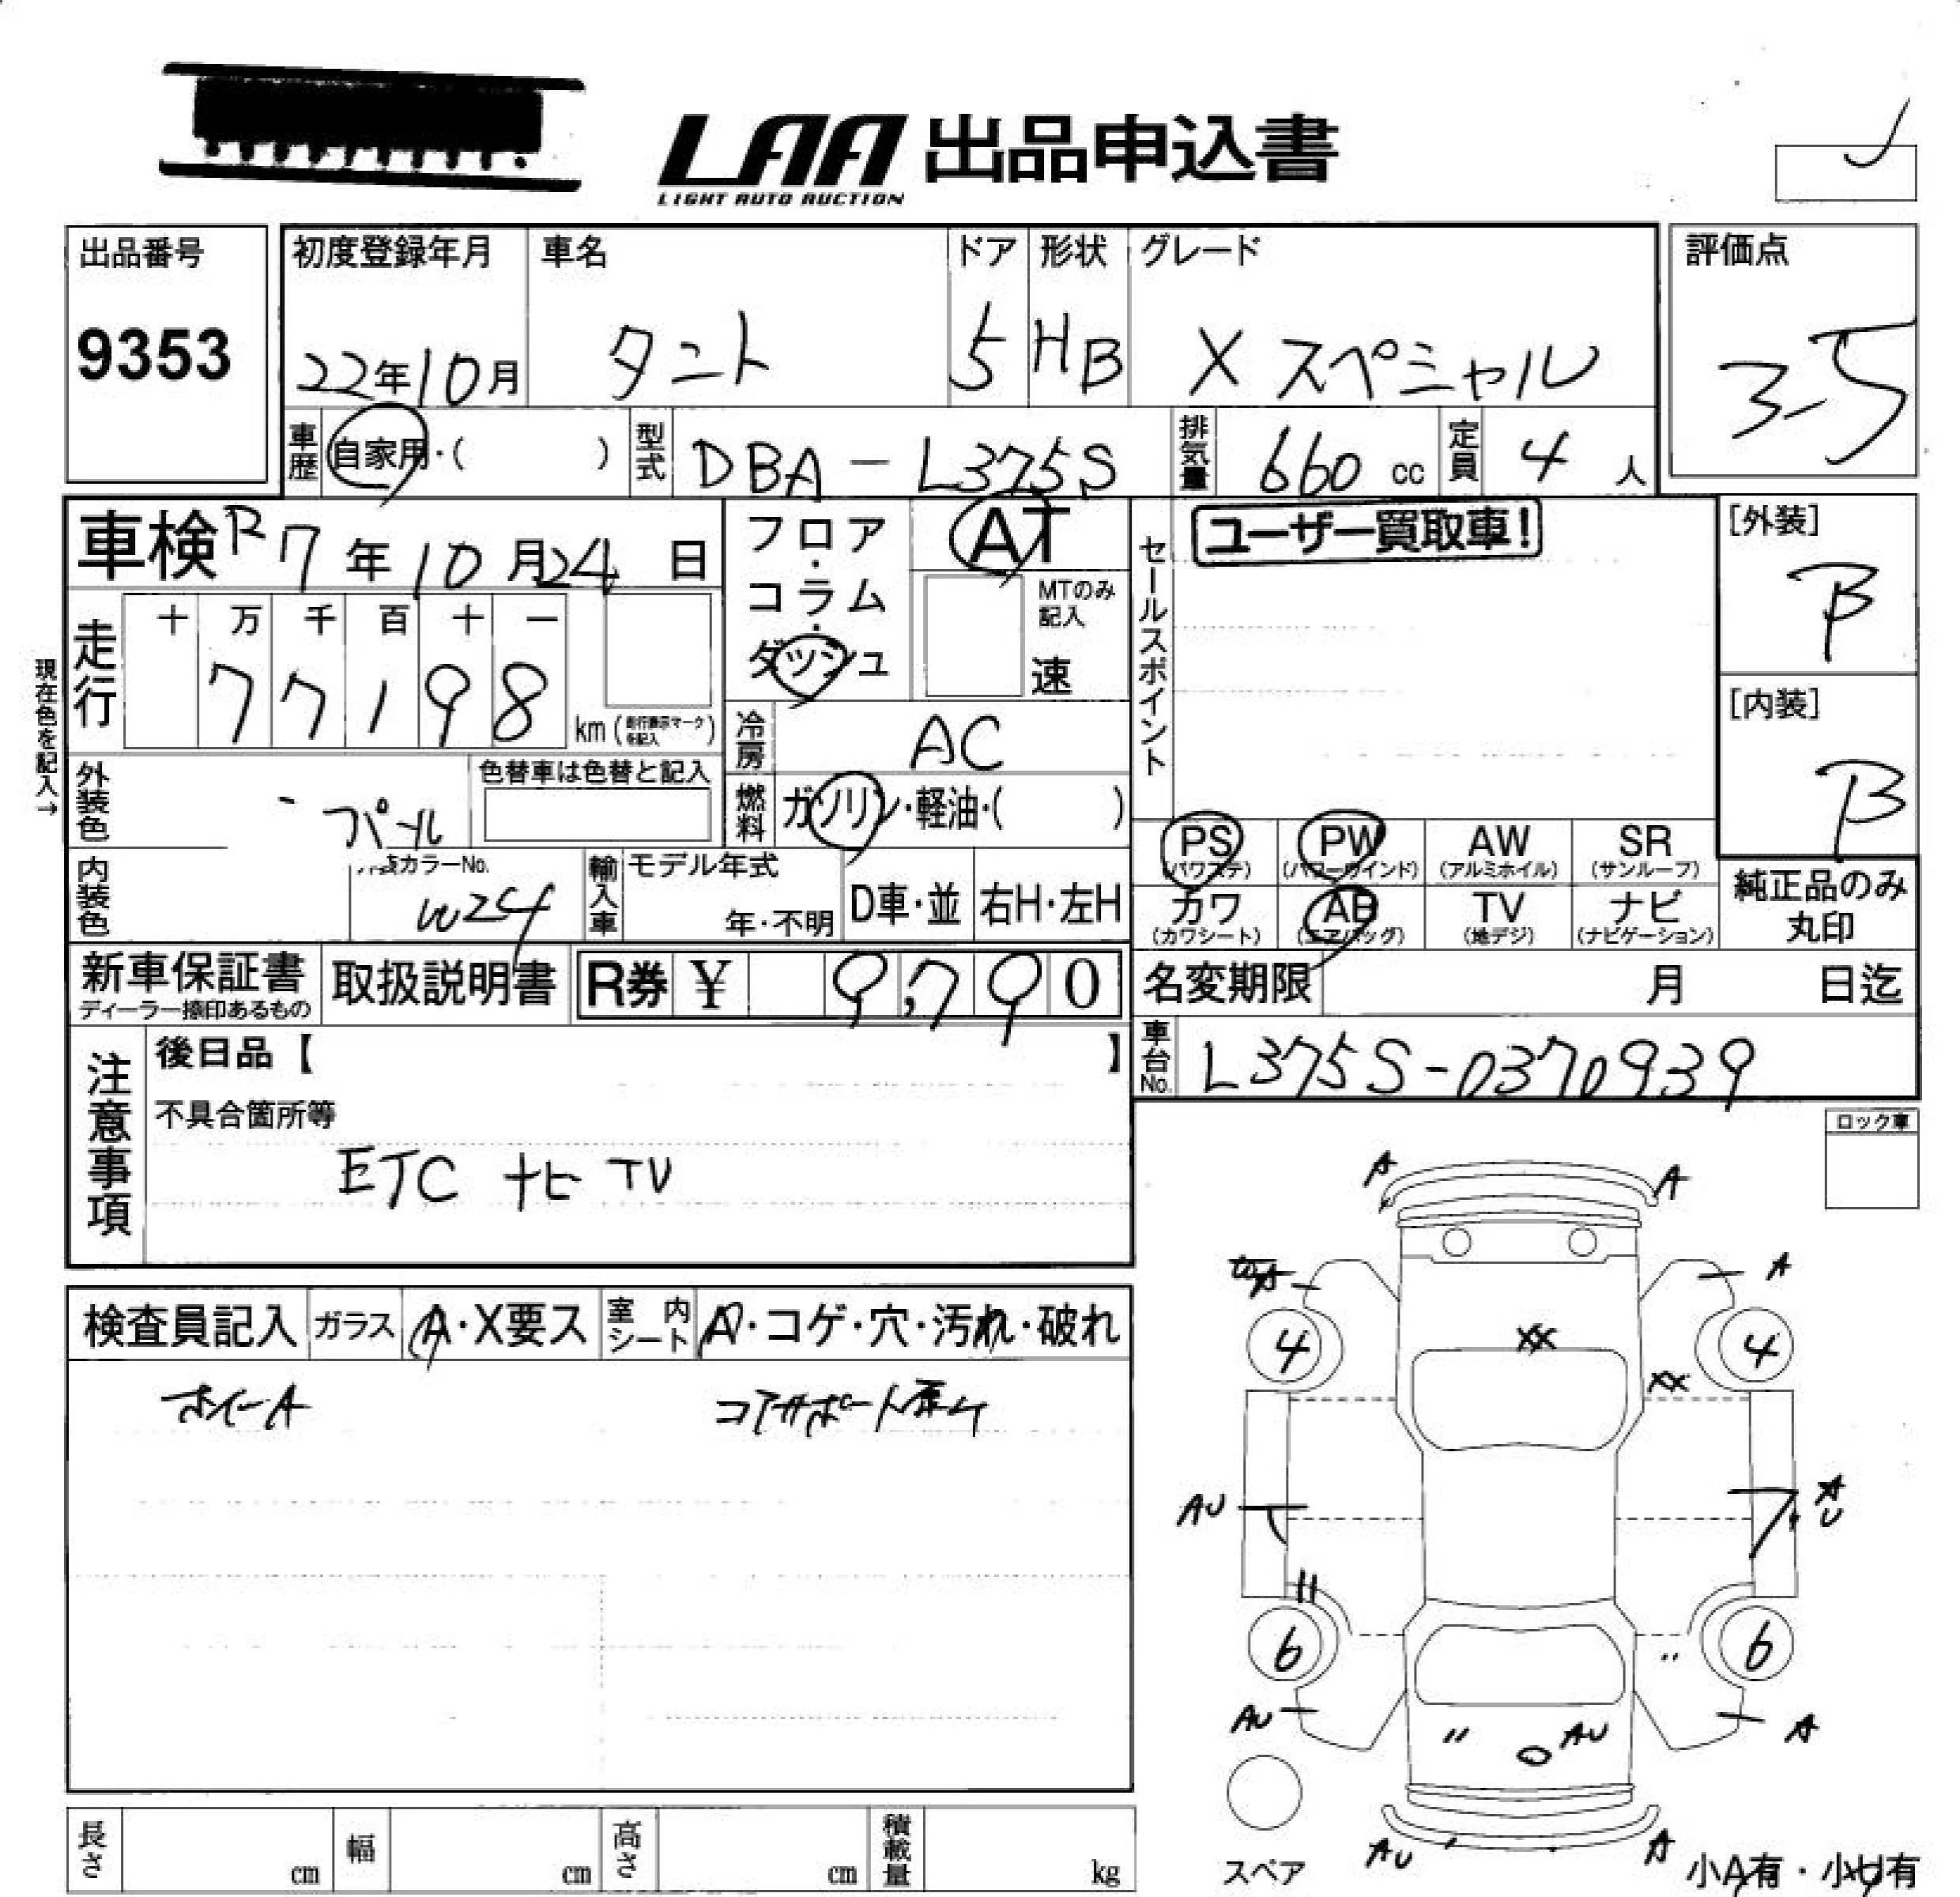 LAA 出品申込書
LIGHT AUTO AUCTION
出品番号 初度登録年月 車名 ドア 形状 グレード 評価点
9353 22年10月 タント 5 HB X スペシャル 3.5
車歴 自家用・( ) 型式 DBA-L375S 排気量 660 cc 定員 4 人
車検 R7年10月24日 フロア・コラム・ダッシュ AT
MTのみ記入 速
セールスポイント ユーザー買取車!
[外装] B
[内装] B
現在色を記入→
走行 十 万 千 百 十 一
77198 km (走行表示マークを記入)
冷房 AC
外装色 パール 色替車は色替と記入
燃料 ガソリン・軽油・( )
内装色 カラーNo. W24
輸入車 モデル年式 年・不明 D車・並 右H・左H
PS (パワステ) PW (パワーウインド) AW (アルミホイル) SR (サンルーフ)
カワ (カワシート) AB (エアバッグ) TV (地デジ) ナビ (ナビゲーション)
純正品のみ丸印
新車保証書 ディーラー捺印あるもの 取扱説明書 R券 ¥ 9,790
名変期限 月 日迄
車台No. L375S-0370939
注意事項 後日品【 】
不具合箇所等
ETC ナビ TV
ロック車
検査員記入 ガラス A・X要ス 室内シート A・コゲ・穴・汚れ・破れ
ホイールA コアサポート
A A
A A
4 XX 4
XX
AU A
U
6 6
AU A
AU
AU A
スペア 小A有・小U有
長さ cm 幅 cm 高さ cm 積載量 kg